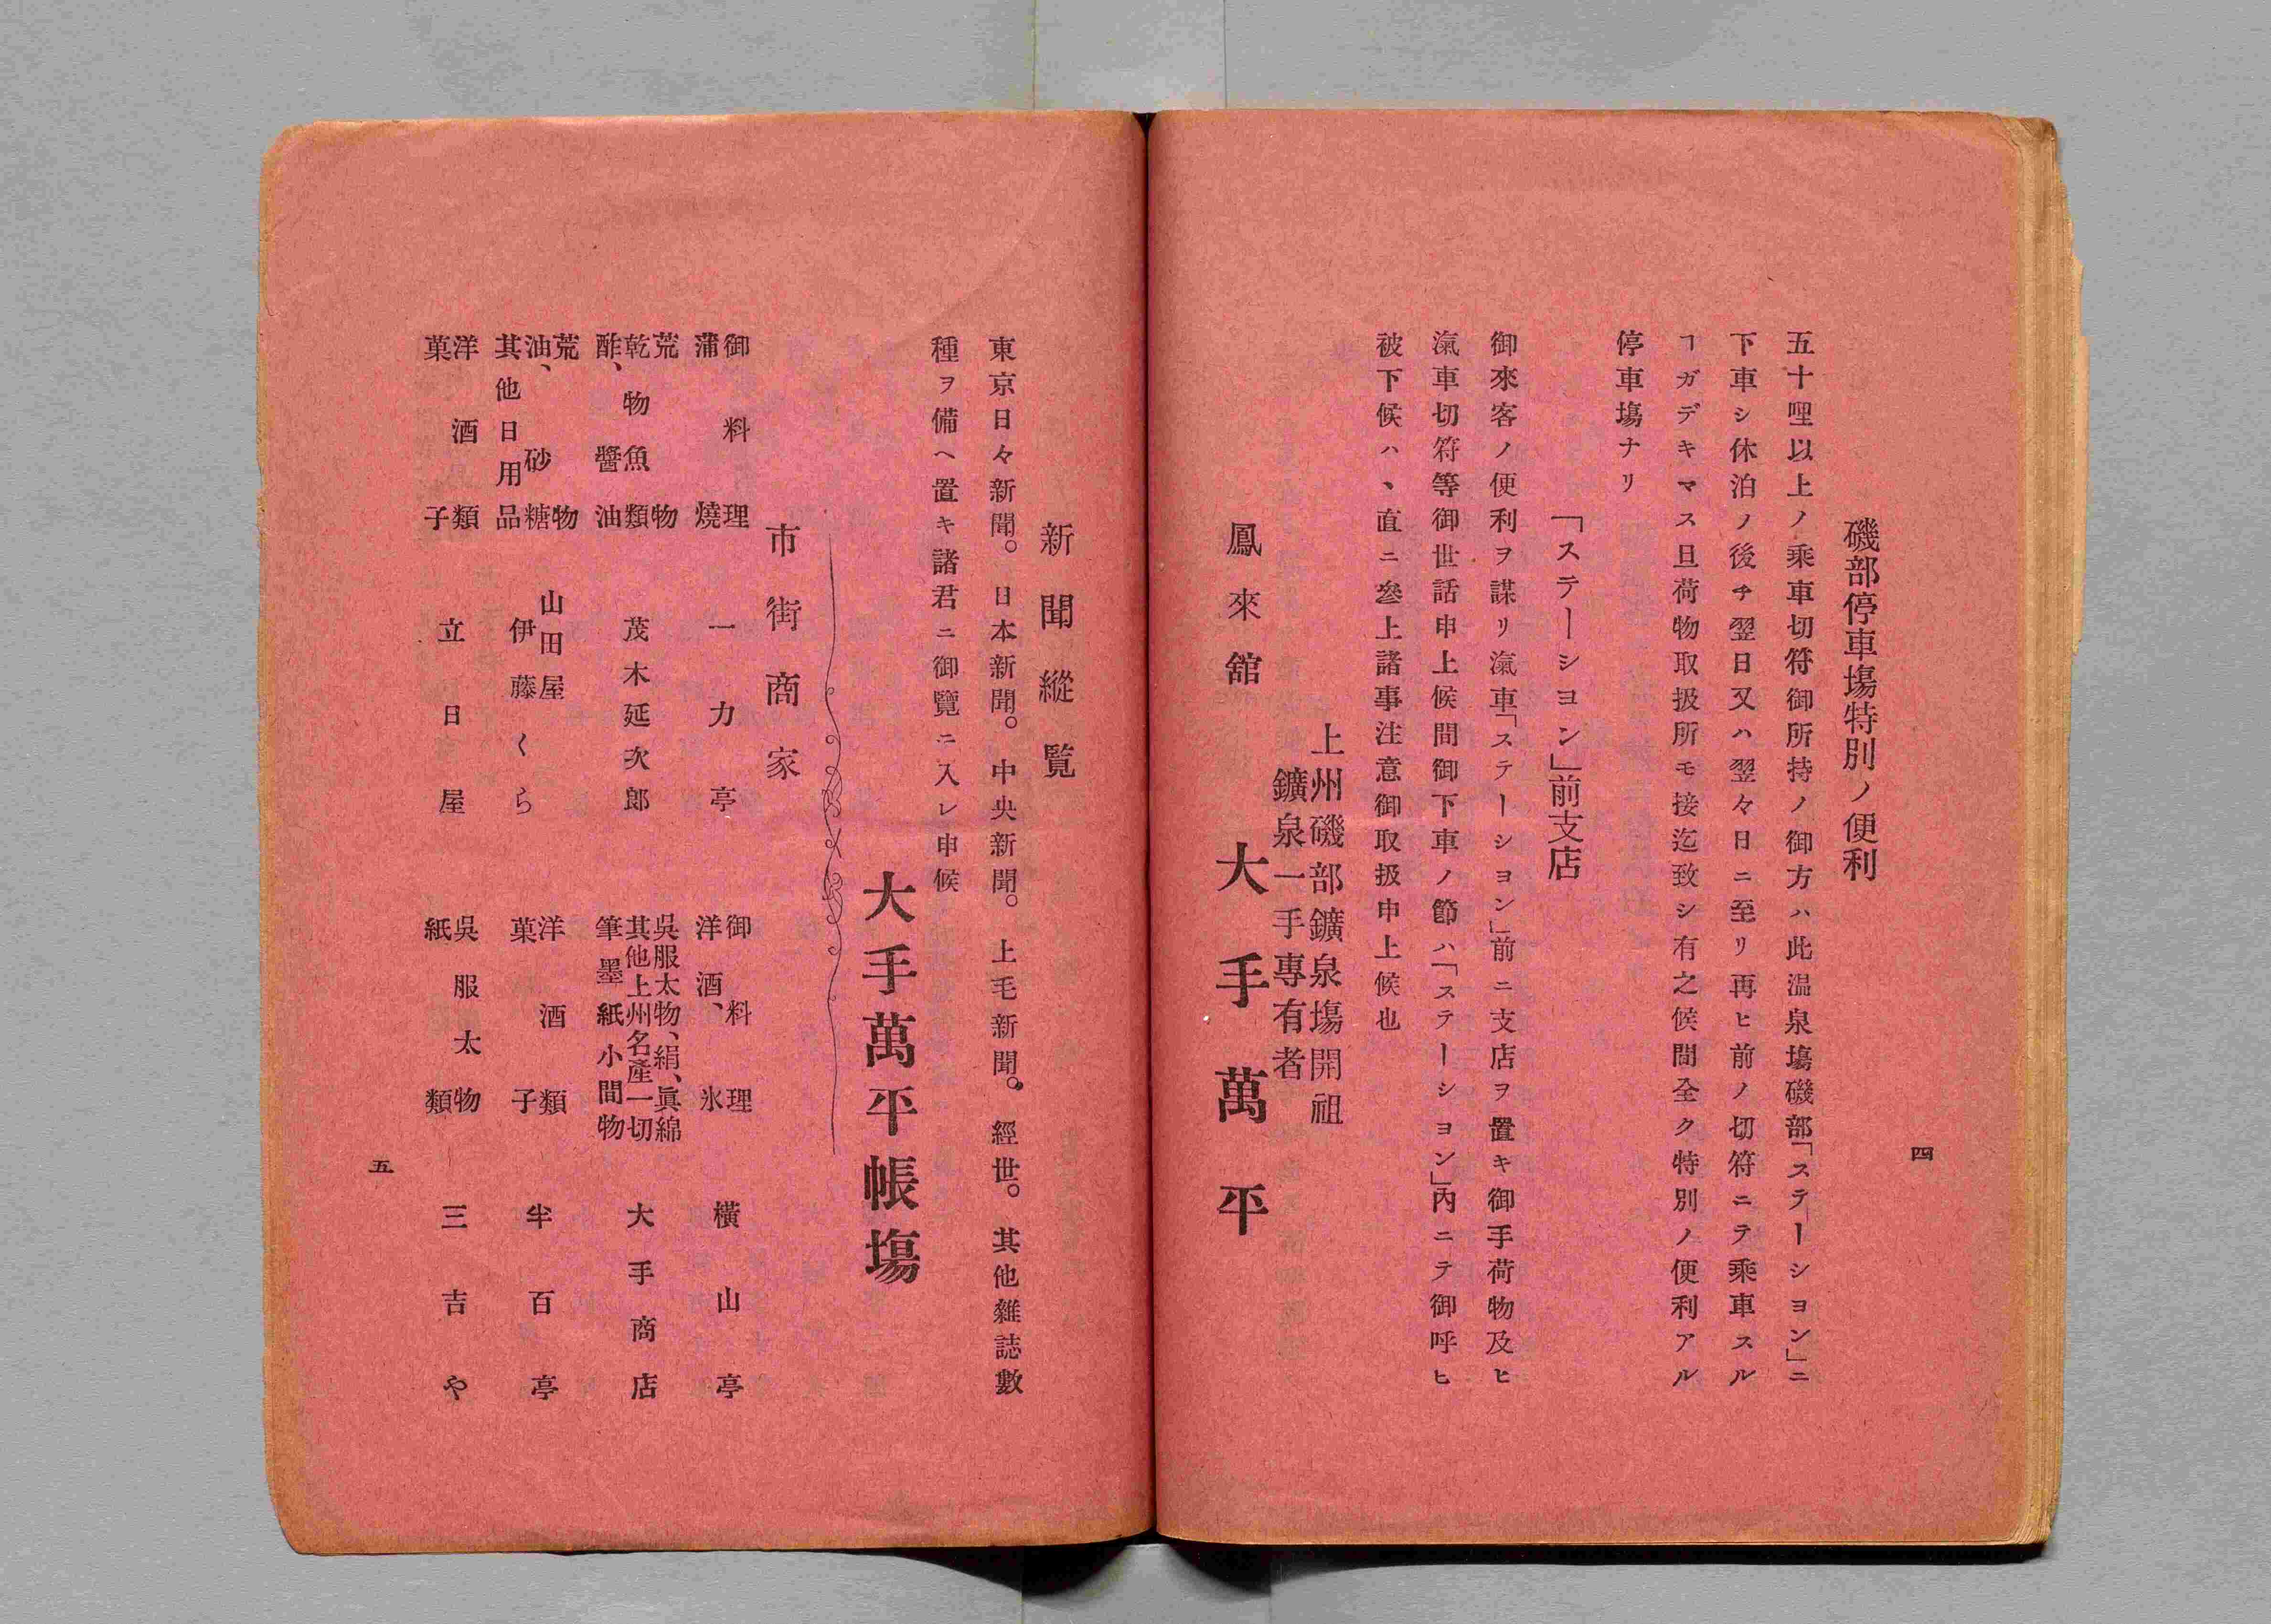 四
磯部停車塲特別ノ便利
五十哩以上ノ乘車切符御所持ノ御方ハ此温泉塲磯部「ステーシヨン」ニ
下車シ休泊ノ後チ翌日又ハ翌々日ニ至リ再ヒ前ノ切符ニテ乘車スル
ヿガデキマス且荷物取扱所モ接近致シ有之候間全ク特別ノ便利アル
停車塲ナリ
「ステーシヨン」前支店
御來客ノ便利ヲ謀リ滊車「ステーシヨン」前ニ支店ヲ置キ御手荷物及ヒ
滊車切符等御世話申上候間御下車ノ節ハ「ステーシヨン」内ニテ御呼ヒ
被下候ハヽ直ニ參上諸事注意御取扱申上候也
上州磯部鑛泉塲開祖
鑛泉一手專有者
鳳來舘 大手萬平
新聞縱覽
東京日々新聞。日本新聞。中央新聞。上毛新聞。經世。其他雜誌數
種ヲ備ヘ置キ諸君ニ御覽ニ入レ申候
大手萬平帳塲
市街商家
御料理
蒲燒
一力亭
荒物
乾物魚類
酢、醬油
茂木延次郎
荒物
油、砂糖
其他日用品
山田屋
伊藤くら
洋酒類
菓子
立日屋
御料理
洋酒、氷
横山亭
吳服太物、絹、眞綿
其他上州名產一切
筆墨紙小間物
大手商店
洋酒類
菓子
半百亭
吳服太物
紙類
三吉や
五